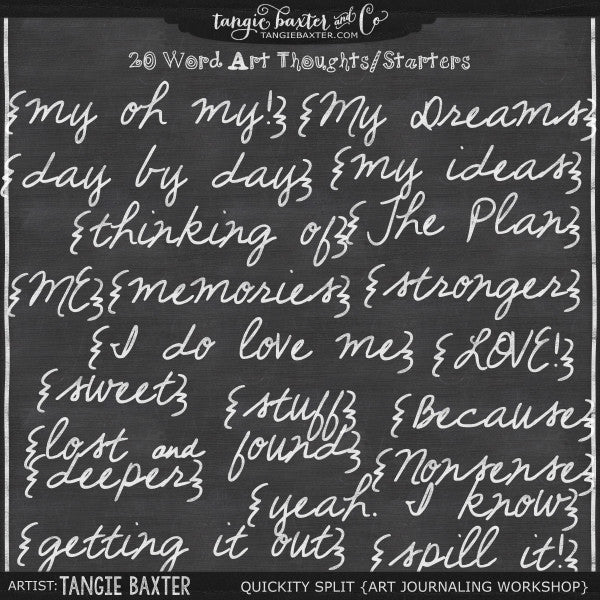 tangie baxter and Co
TANGIEBAXTER.COM
20 Word Art Thoughts/Starters
{my oh my!} {My Dreams}
{day by day} {my ideas}
{thinking of} {The Plan}
{ME} {memories} {stronger}
{I do love me} {LOVE!}
{sweet}
{stuff} {Because}
{lost and found}
{deeper} {Nonsense}
{yeah. I know}
{getting it out} {spill it!}
ARTIST: TANGIE BAXTER QUICKITY SPLIT {ART JOURNALING WORKSHOP}